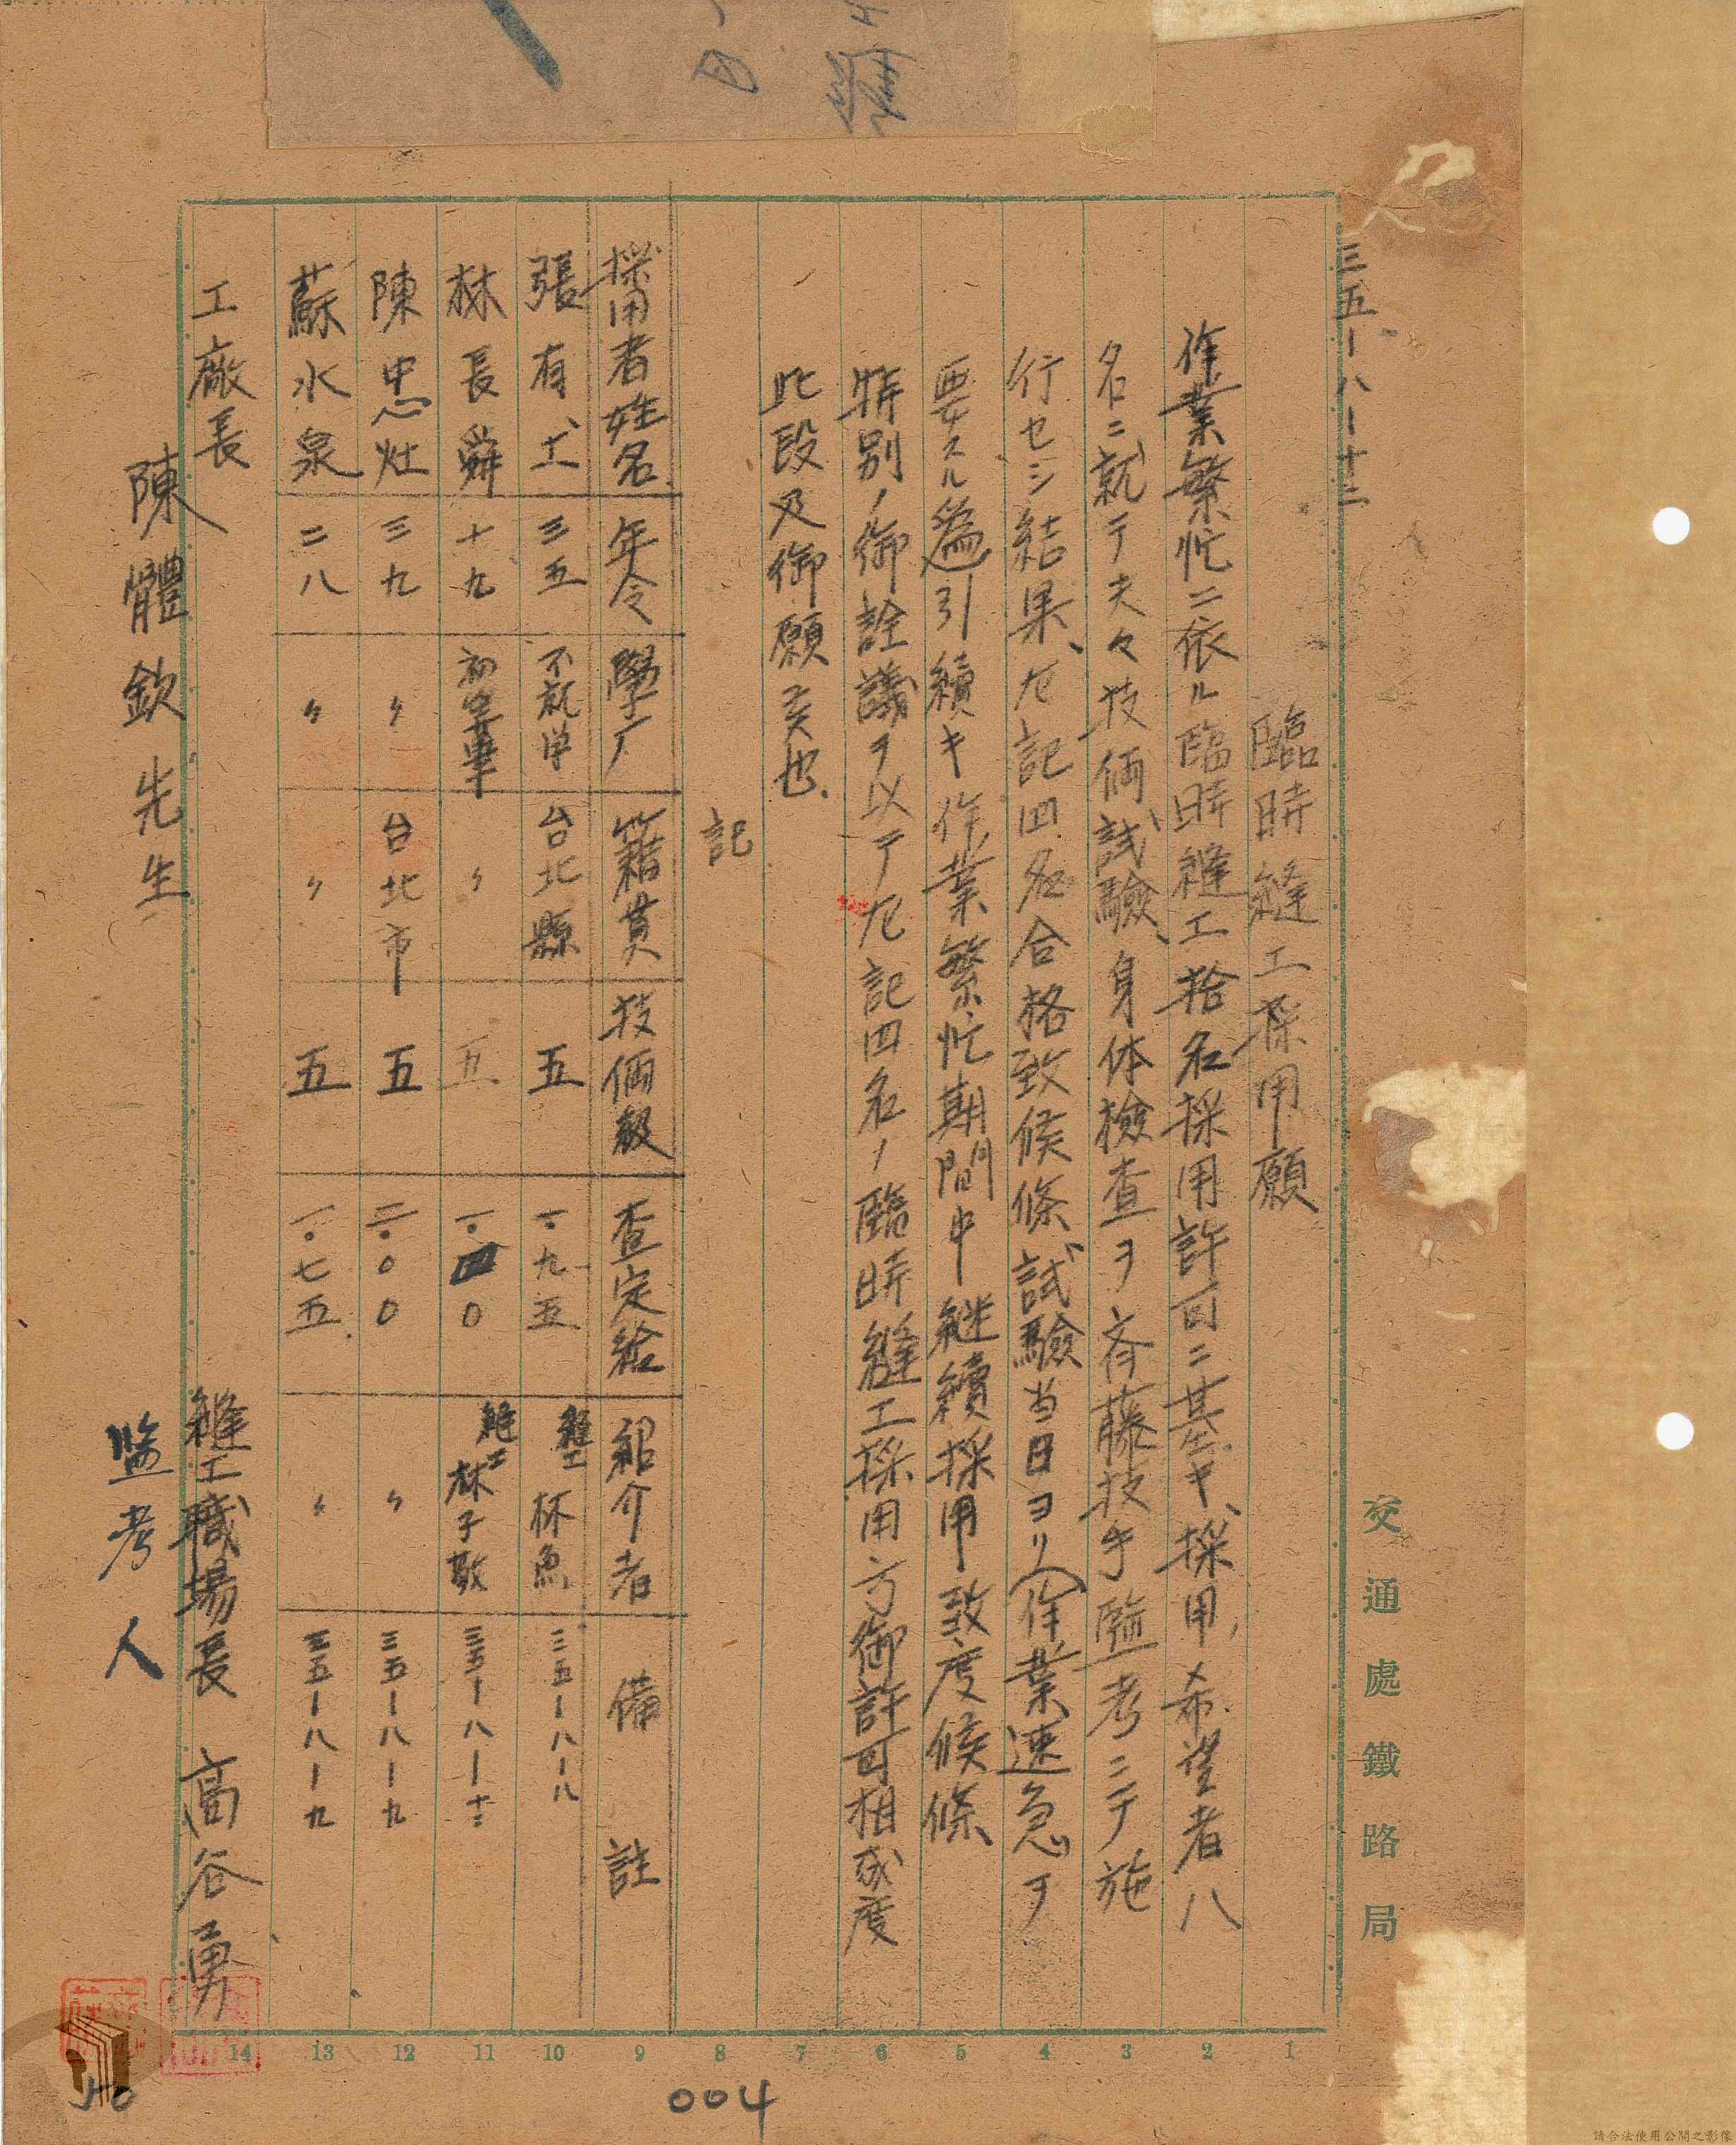 交通處鐵路局
三五ー八ー十二
臨時縫工採用願
作業繁忙ニ依ル臨時縫工拾名採用許可ニ基キ、採用希望者八
名ニ就テ夫々技倆試驗、身体檢查ヲ齊藤技手監考ニテ施
行セシ結果、左記四名合格致候條、試驗当日ヨリ作業速急ヲ
要スル為引續キ作業繁忙期間中継續採用致度候條、
特別ノ御詮議ヲ以テ左記四名ノ臨時縫工採用方御許可相成度
此段及御願候也
記
採用者姓名 年令 學厂 籍貫 技倆級 查定給 紹介者 備註
張有土 三五 不就学 台北縣 五 一.九五 縫工 林魚 三五ー八ー八
林長舜 十九 初等畢 〃 五 一.四〇 縫工 林子敬 三五ー八ー十二
陳忠灶 三九 〃 台北市 五 二.〇〇 〃 三五ー八ー九
蘇水泉 二八 〃 〃 五 一.七五 〃 三五ー八ー九
工廠長
縫工職場長 高谷勇
陳體欽先生
監考人
1 2 3 4 5 6 7 8 9 10 11 12 13 14
004
請合法使用公開之影像